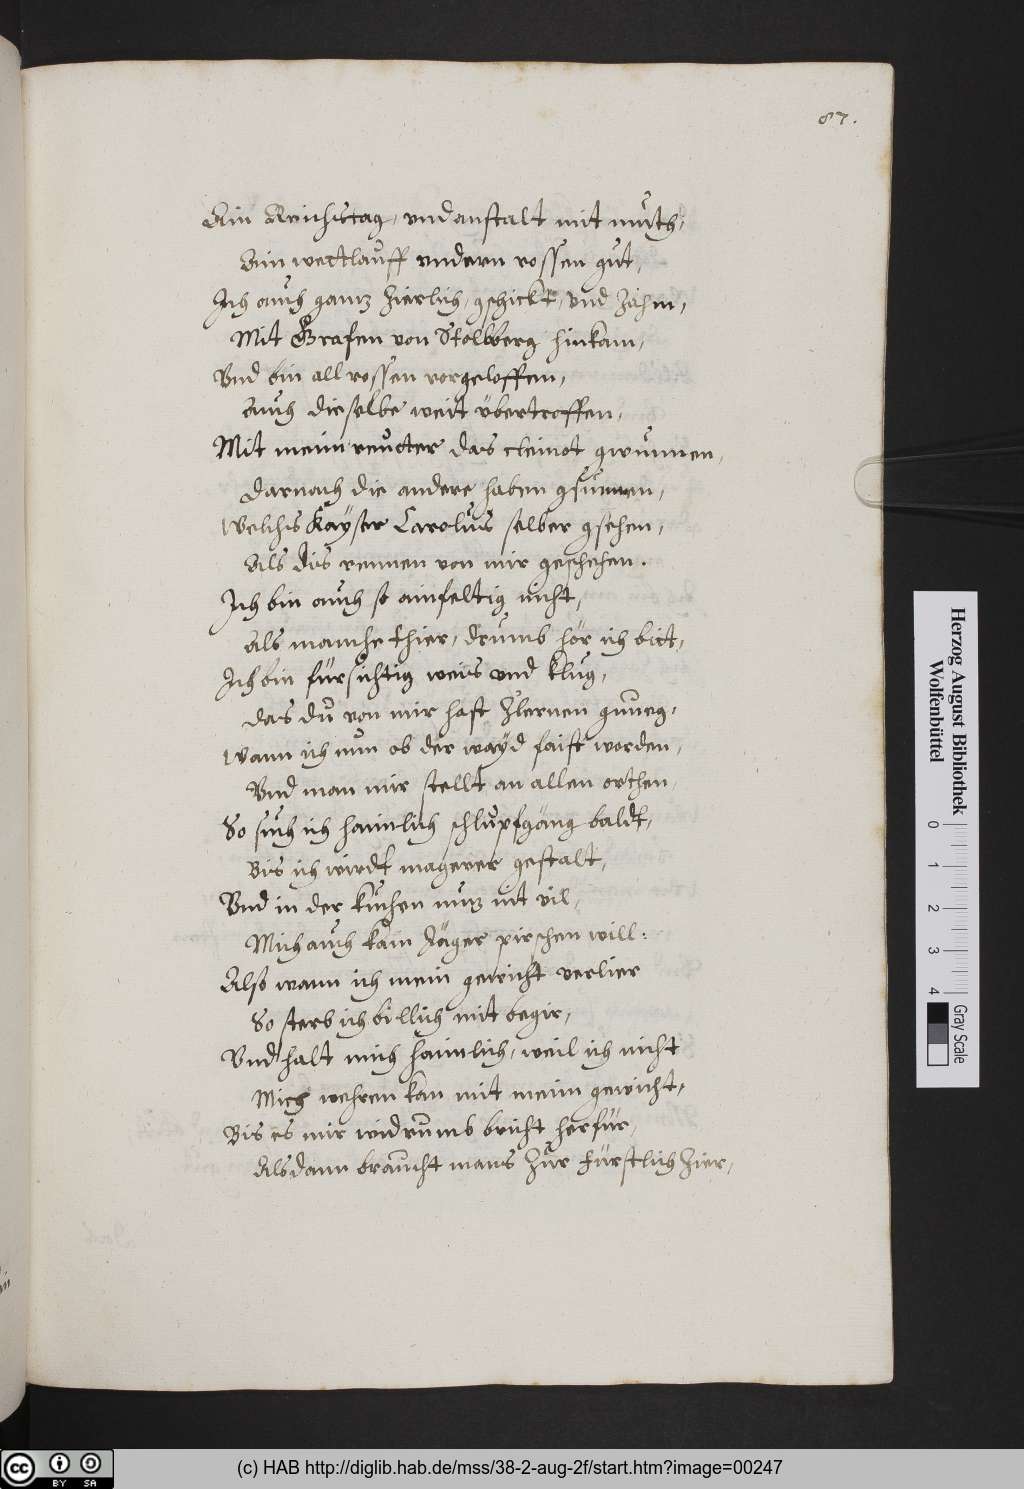 87.
Ain Reichstag, vnd anstalt mit muth,
Ain wettlauff vndern rossen gut,
Ich auch gantz zierlich, gschickt, vnd zahm,
Mit Grafen von Stolberg hinkam,
Vnd bin all rossen vorgeloffen,
Auch dieselbe weit übertroffen,
Mit meim reutter das cleinot gwunnen,
Darnach die andere haben gsunnen,
Welchs Kayser Carolus selber gsehen,
Als dis rennen von mir geschehen.
Ich bin auch so ainfeltig nicht,
Als manche thier, drumb hör ich bitt,
Ich bin fürsichtig weis vnd klug,
Das du von mir hast zlernen gnueg,
Wann ich nun ob der wayd faist worden,
Vnd man mir stellt an allen orthen,
So such ich haimlich schlupfgäng baldt,
Bis ich wirdt magerer gestalt,
Vnd in der kuchen nutz nit vil,
Mich auch kain Jäger pirschen will:
Also wann ich mein gewicht verlier
So sterb ich billich mit begir,
Vnd halt mich haimlich, weil ich nicht
Mich wehren kan mit meim gewicht,
Bis es mir widrumb bricht herfür,
Alsdann braucht mans zur fürstlich zier,
Herzog August Bibliothek
Wolfenbüttel
0 1 2 3 4
Gray Scale
cc BY SA
(c) HAB http://diglib.hab.de/mss/38-2-aug-2f/start.htm?image=00247